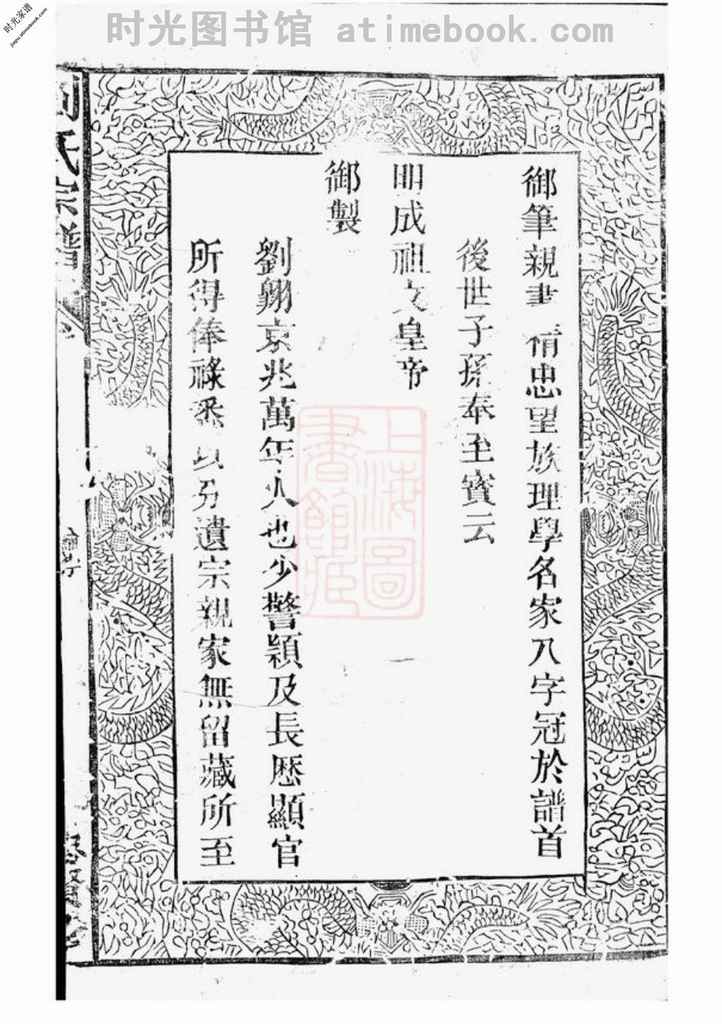 时光家谱
jiapu.atimebook.com
时光图书馆 atimebook.com
御筆親書精忠望族理學名家八字冠於譜首
後世子孫奉至寶云
明成祖文皇帝
御製
劉翱京兆萬年人也少警穎及長歷顯官
所得俸祿悉以分遺宗親家無留藏所至
劉氏宗譜
上海圖書館藏